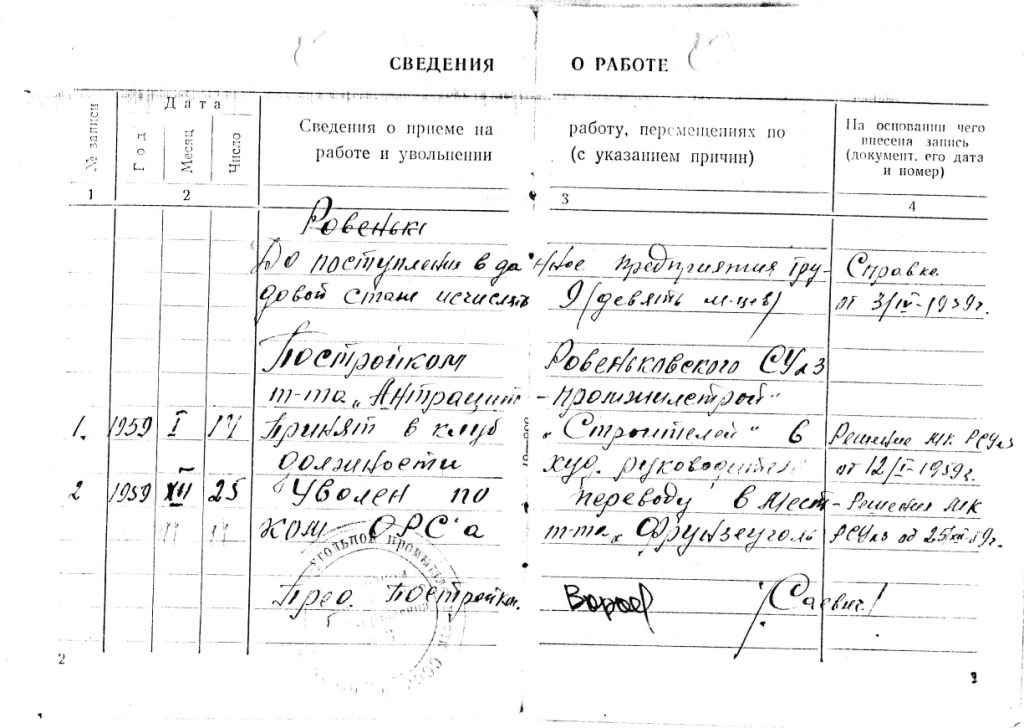 СВЕДЕНИЯ О РАБОТЕ
№ записи
Дата
Год
Месяц
Число
Сведения о приеме на работу, перемещениях по
работе и увольнении (с указанием причин)
На основании чего
внесена запись
(документ, его дата
и номер)
1 2 3 4
Ровеньки
До поступления в данное предприятия тру- Справка
довой стаж исчислять 9 (девять м-цев) от 3/IV-1959г.
Постройком Ровеньковского СУ№3
т-та "Антрацит -промжилстрой"
1. 1959 I 14 Принят в клуб "Строителей" в Решение МК РСУ№3
должности худ. руководителя от 12/I-1959г.
2 1959 XII 25 Уволен по переводу в Мест- Решения МК
ком ОРС'а т-та "Фрунзеуголь РСУ№3 от 25/XII-59г.
Пред. Постройком. /Саевич/
угольной
СССР
2
3